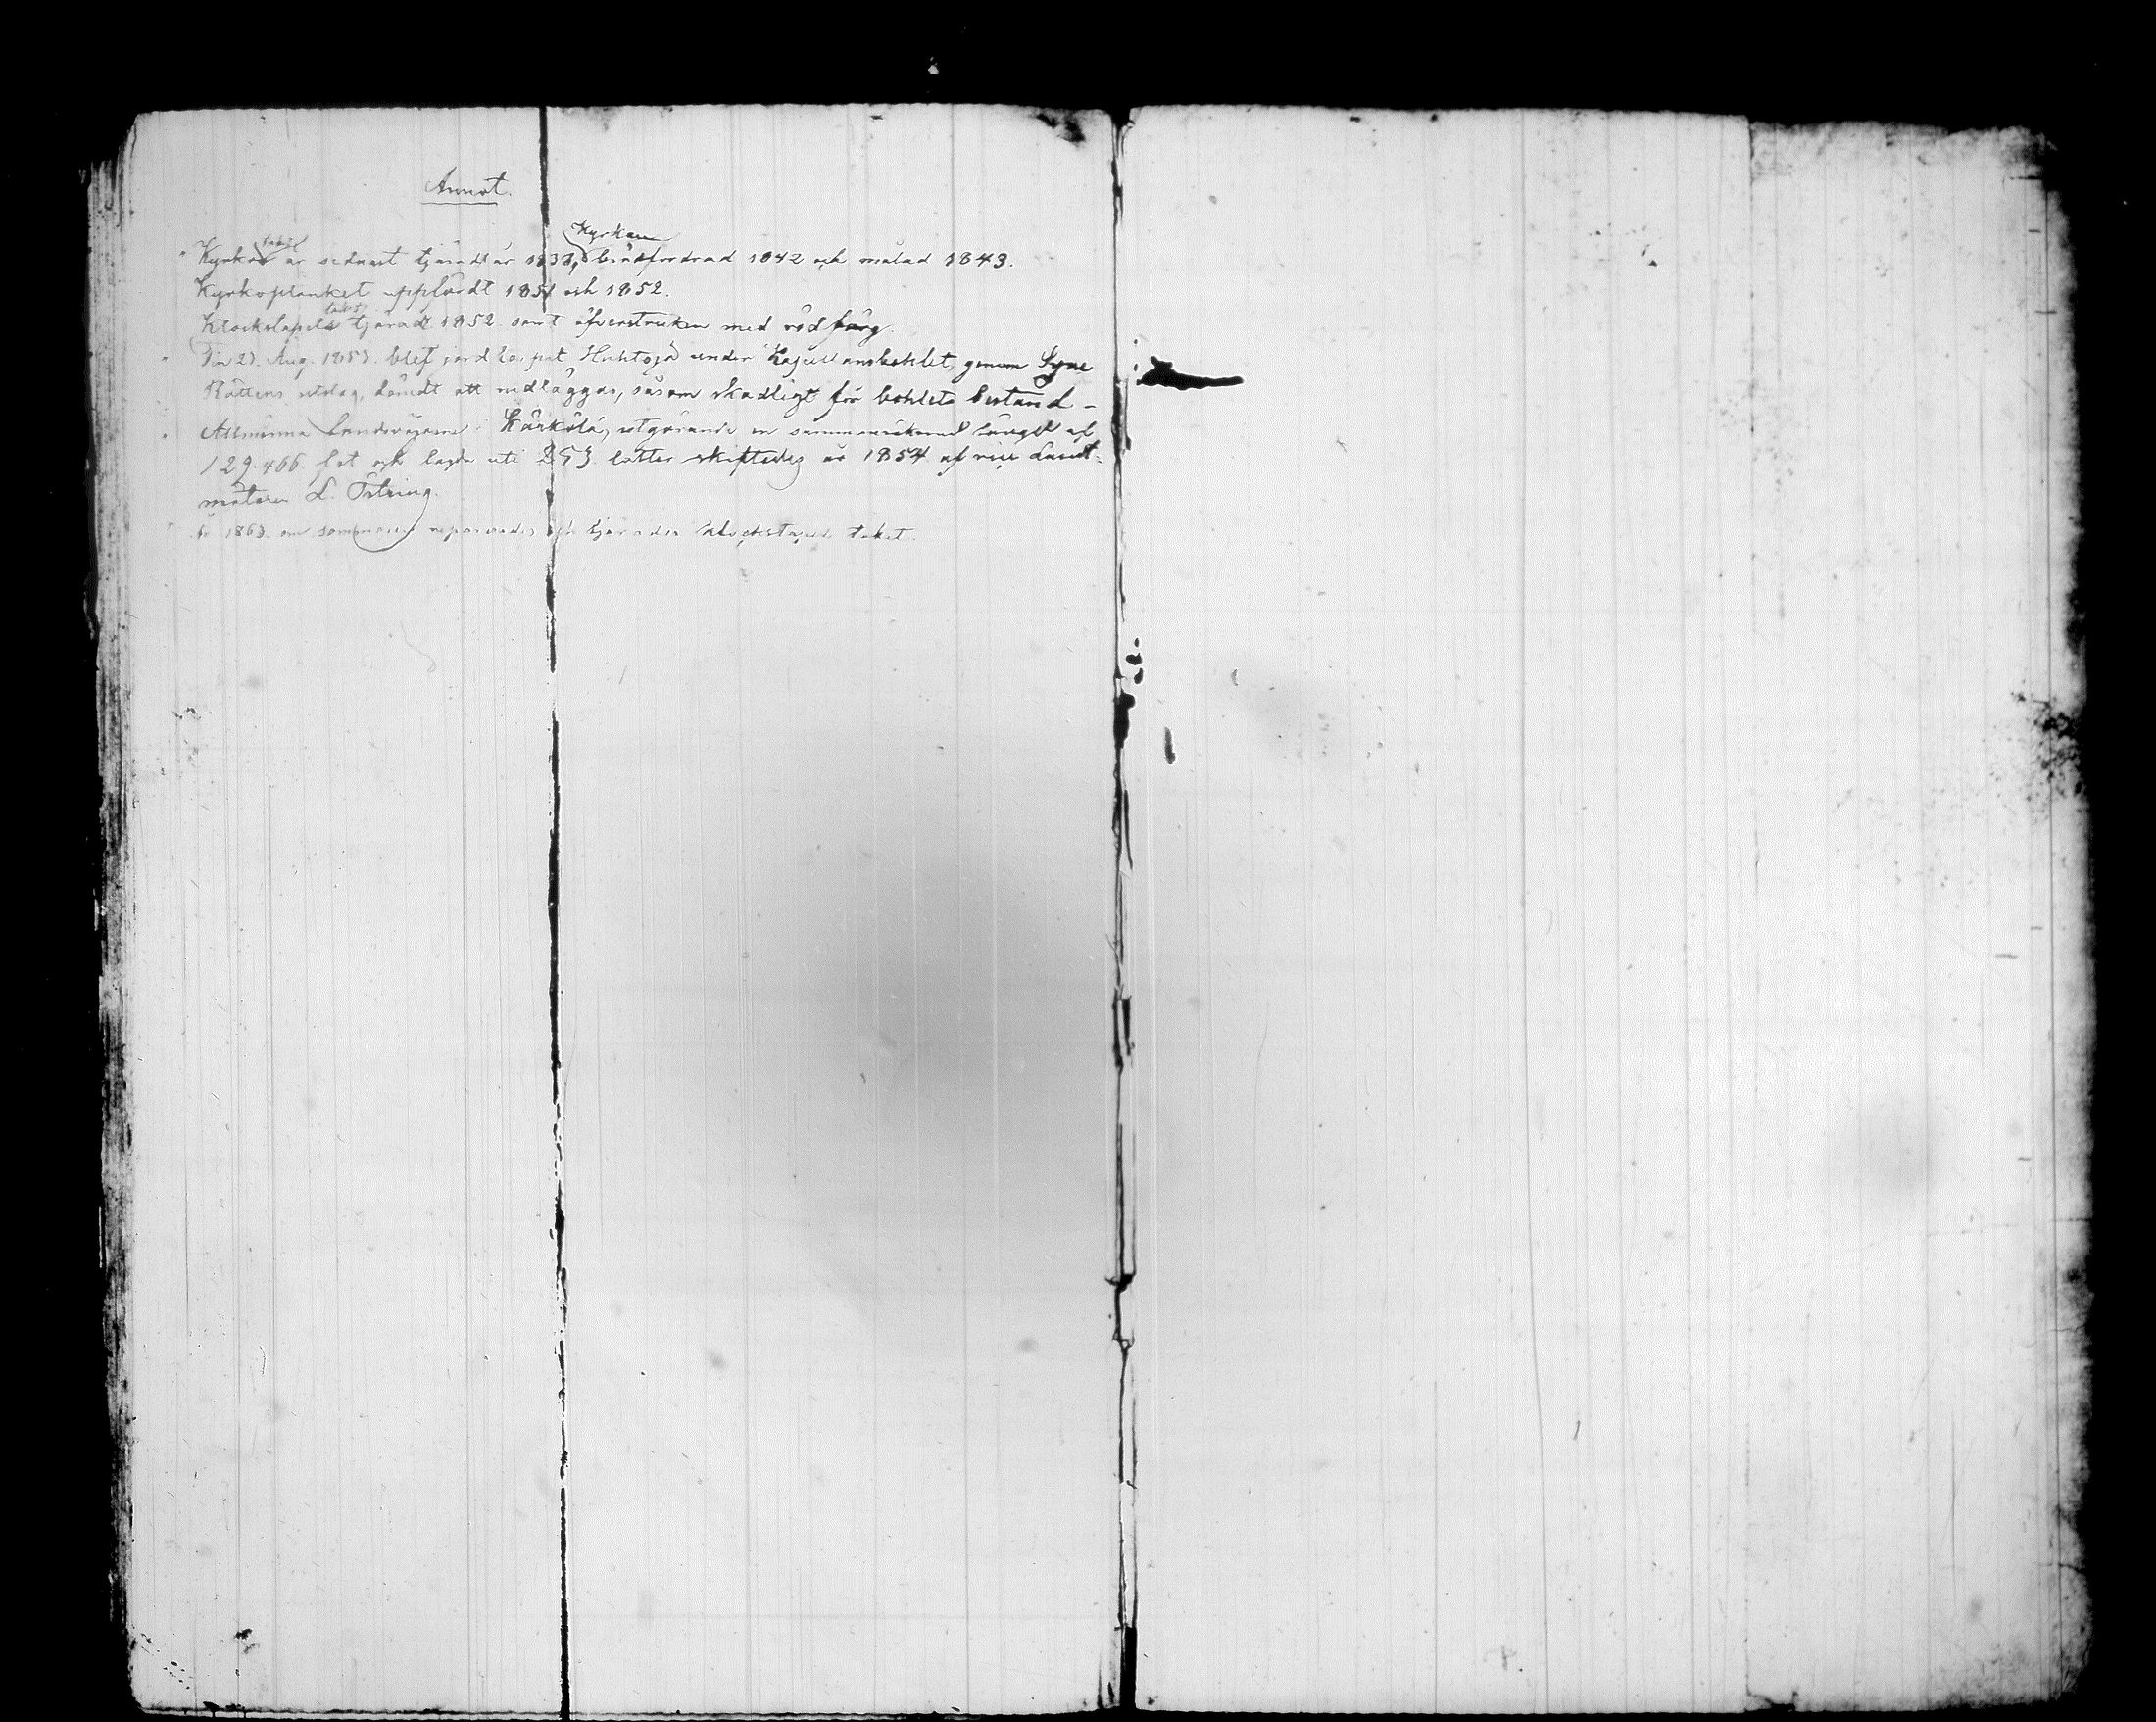 Annot.
Kyrko taket är sednast tjäradt år 1837, Kyrkan brädfordrad 1842 och målad 1843.
Kyrkoplanket uppfördt 1851 och 1852.
Klockstapels taket tjäradt 1852 samt öfverstruken med röd färg.
Den 27. Aug. 1853. blef jordtorpet Huhtoja under Kapellansbohlet, genom Syne
Rättens utslag, dömdt att nedläggas, såsom skadligt för bohlets bestånd –
Allmänna landsvägarne i Kärkölä, utgörande en sammanräknad längd af
129.466. fot och lagda uti 253 lotter skiftades år 1854 af vice Landt-
mätaren L. Östring.
År 1863. om sommaren reparerades och tjärades klockstapels taket.